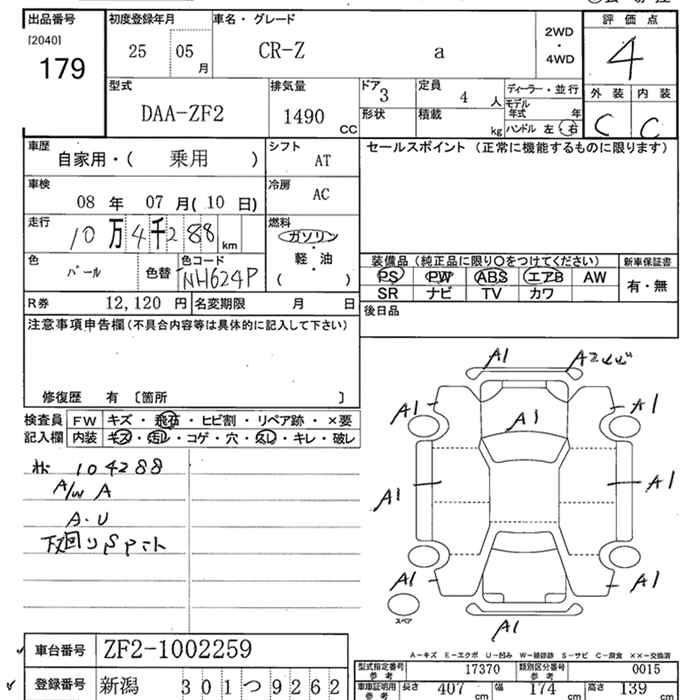 出品番号 初度登録年月 車名・グレード 評価点
[2040]
179 25 05月 CR-Z a 2WD・4WD 4
型式 排気量 ドア 定員 ディーラー・並行 外装 内装
DAA-ZF2 1490CC 3 4人 モデル年式 年 C C
形状 積載 kg ハンドル 左・右
車歴 シフト セールスポイント (正常に機能するものに限ります)
自家用・( 乗用 ) AT
車検 冷房
08年 07月(10日) AC
走行 燃料
10万4千288km ガソリン
軽・油
( )
色 色コード 装備品(純正品に限り○をつけてください) 新車保証書
パール 色替 NH624P PS PW ABS エアB AW 有・無
SR ナビ TV カワ
R券 12,120円 名変期限 月 日 後日品
注意事項申告欄(不具合内容等は具体的に記入して下さい)
修復歴 有 〔箇所 〕
検査員記入欄 FW キズ・飛石・ヒビ割・リペア跡・×要
内装 キズ・汚レ・コゲ・穴・スレ・キレ・破レ
104288
A/W A
A・U
A1
A1
A1 A1
A1 A1
A1 A1
A1
スペア
A-キズ E-エクボ U-凹み W-補修跡 S-サビ C-腐食 ××-交換済
車台番号 ZF2-1002259
型式指定番号 参考 17370 類別区分番号 参考 0015
登録番号 新潟 301つ9262
車庫証明用 参考 長さ 407cm 幅 174cm 高さ 139cm